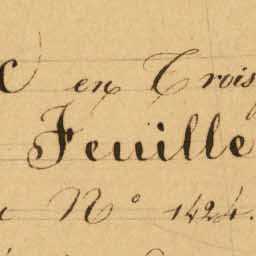 C en Trois
Feuille
N° 1424.